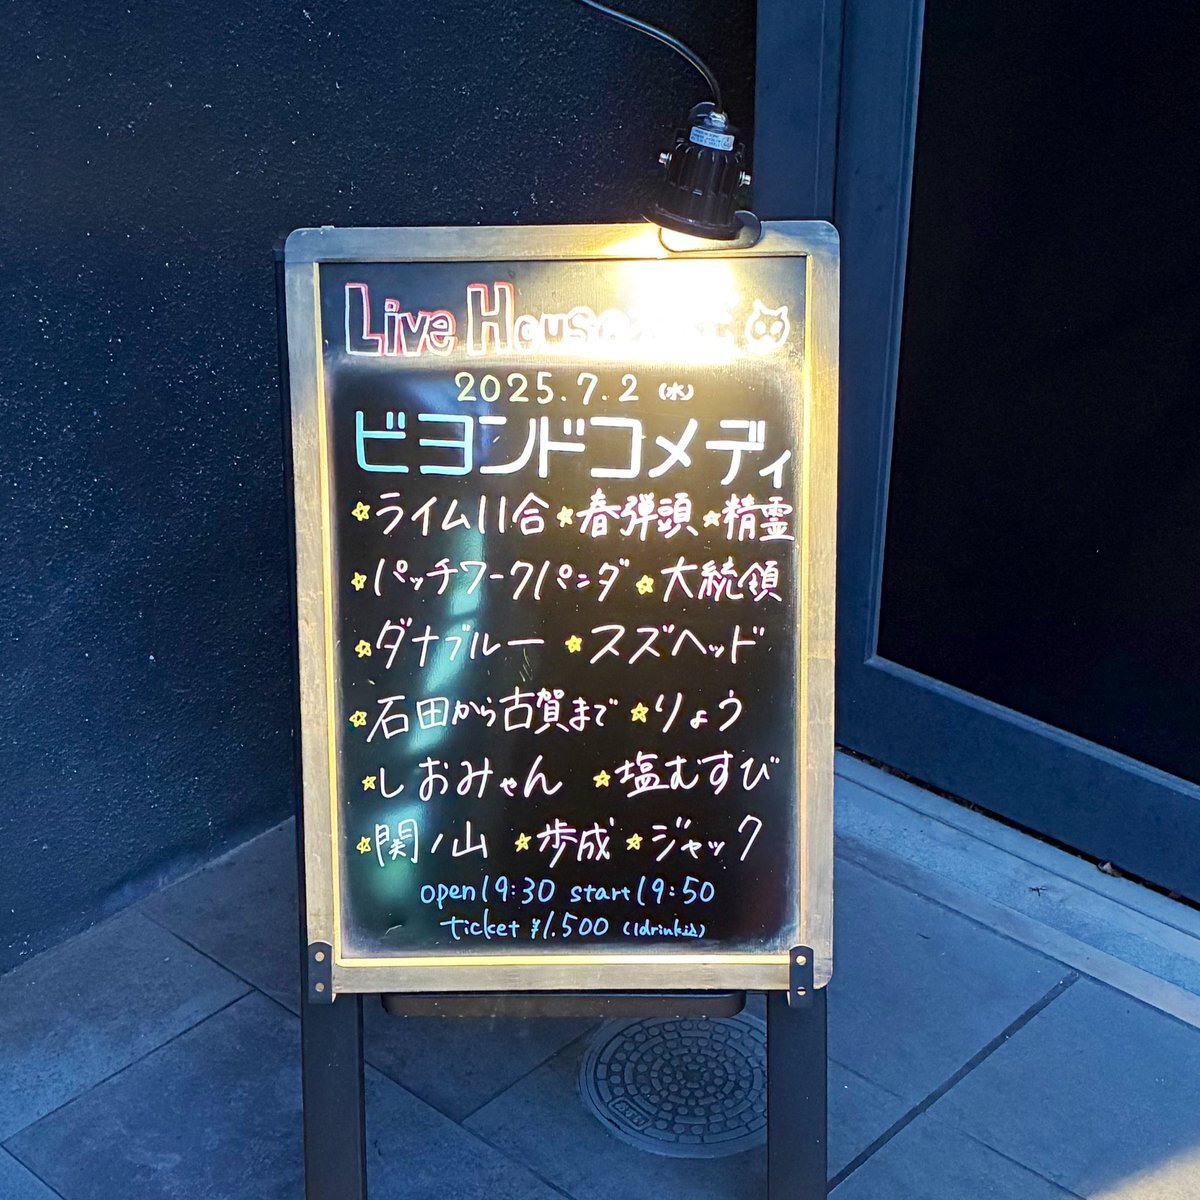 Live House
2025.7.2 (水)
ビヨンドコメディ
☆ライム川合 ☆春弾頭 ☆精霊
☆パッチワークパンダ ☆大統領
☆ダナブルー ☆スズヘッド
☆石田から古賀まで ☆りょう
☆しおみゃん ☆塩むすび
☆関ノ山 ☆歩成 ☆ジャック
open19:30 start19:50
ticket ¥1.500 (1drink込)